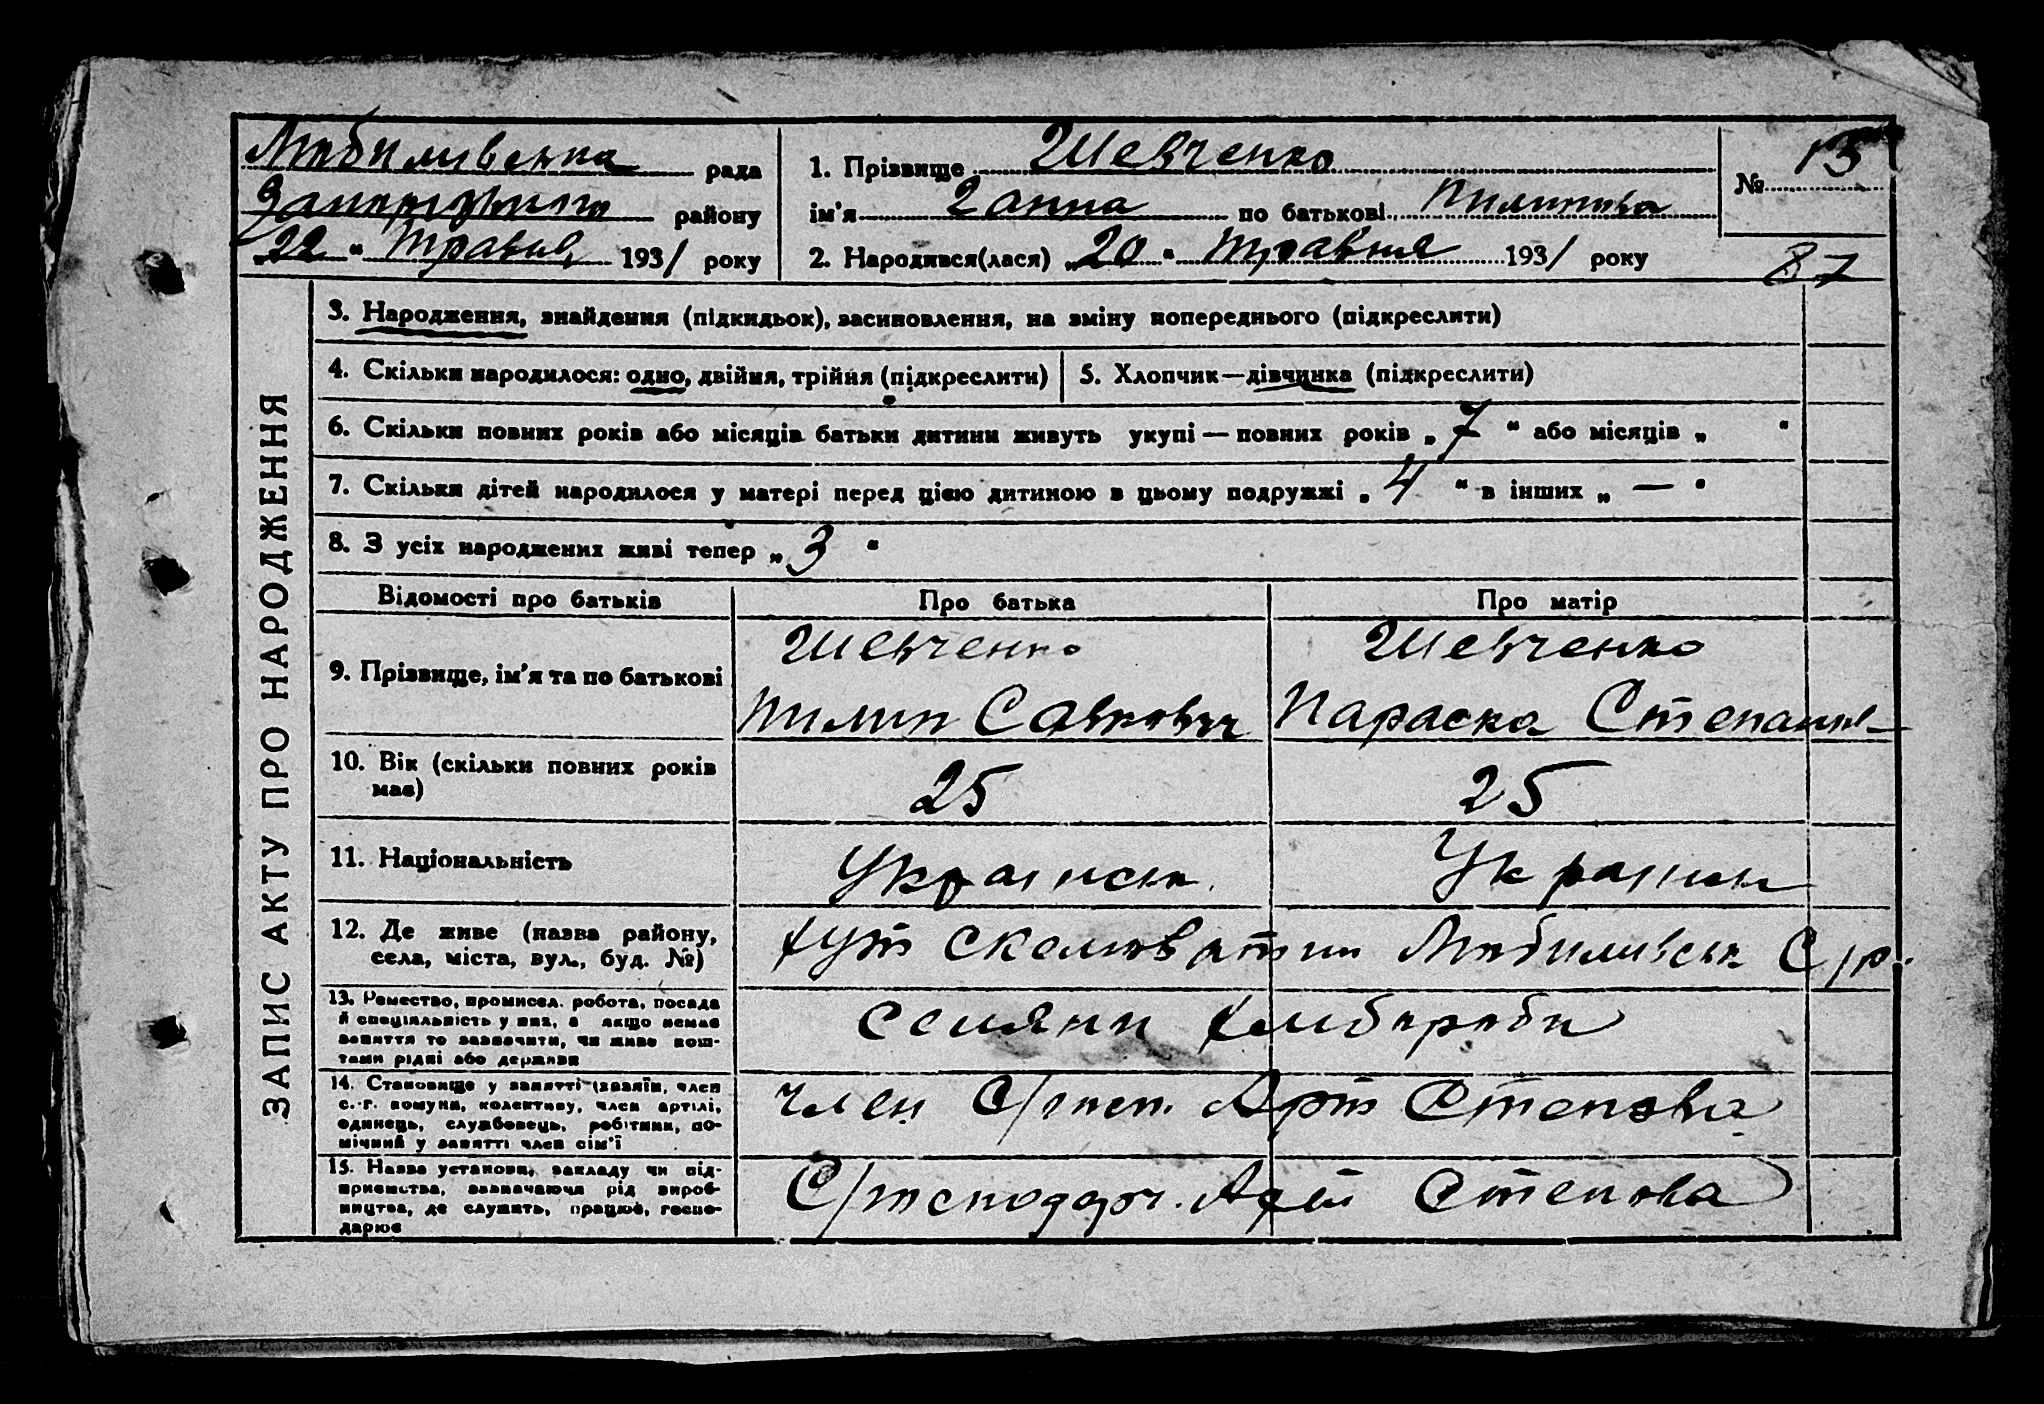 Любимивська рада
Запорізького району
„22“ Травня 1931 року
1. Прізвище Шевченко
ім'я Ганна по батькові Пилипівна
2. Народився(лася) „20“ Травня 1931 року
№ 13
87
ЗАПИС АКТУ ПРО НАРОДЖЕННЯ
3. Народження, знайдення (підкидьок), засиновлення, на зміну попереднього (підкреслити)
4. Скільки народилося: одно, двійня, трійня (підкреслити)
5. Хлопчик—дівчинка (підкреслити)
6. Скільки повних років або місяців батьки дитини живуть укупі — повних років „7“ або місяців „ “
7. Скільки дітей народилося у матері перед цією дитиною в цьому подружжі „4“ в інших „—“
8. З усіх народжених живі тепер „3“
Відомості про батьків
Про батька
Про матір
9. Прізвище, ім'я та по батькові
Шевченко
Пилип Савкович
Шевченко
Параска Степанів
10. Вік (скільки повних років
має)
25
25
11. Національність
Українськ.
Українськ
12. Де живе (назва району,
села, міста, вул., буд. №)
хут Скелюватий Любимивськ С/р.
13. Ремество, промисел. робота, посада
й спеціяльність у них, а якщо немає
заняття то зазначити, чи живе кош-
тами рідні або держави
селяни хлібороби
14. Становище у занятті (хазяїн, член
с.-г. комуни, колективу, член артілі,
одинець, службовець, робітник, по-
мічний у занятті член сім'ї
член С/госп. Арт Степова
15. Назва установи, закладу чи під-
приємства, зазначаючи рід вироб-
ництва, де служить, працює, госпо-
дарює
С/господарч. Арт Степова